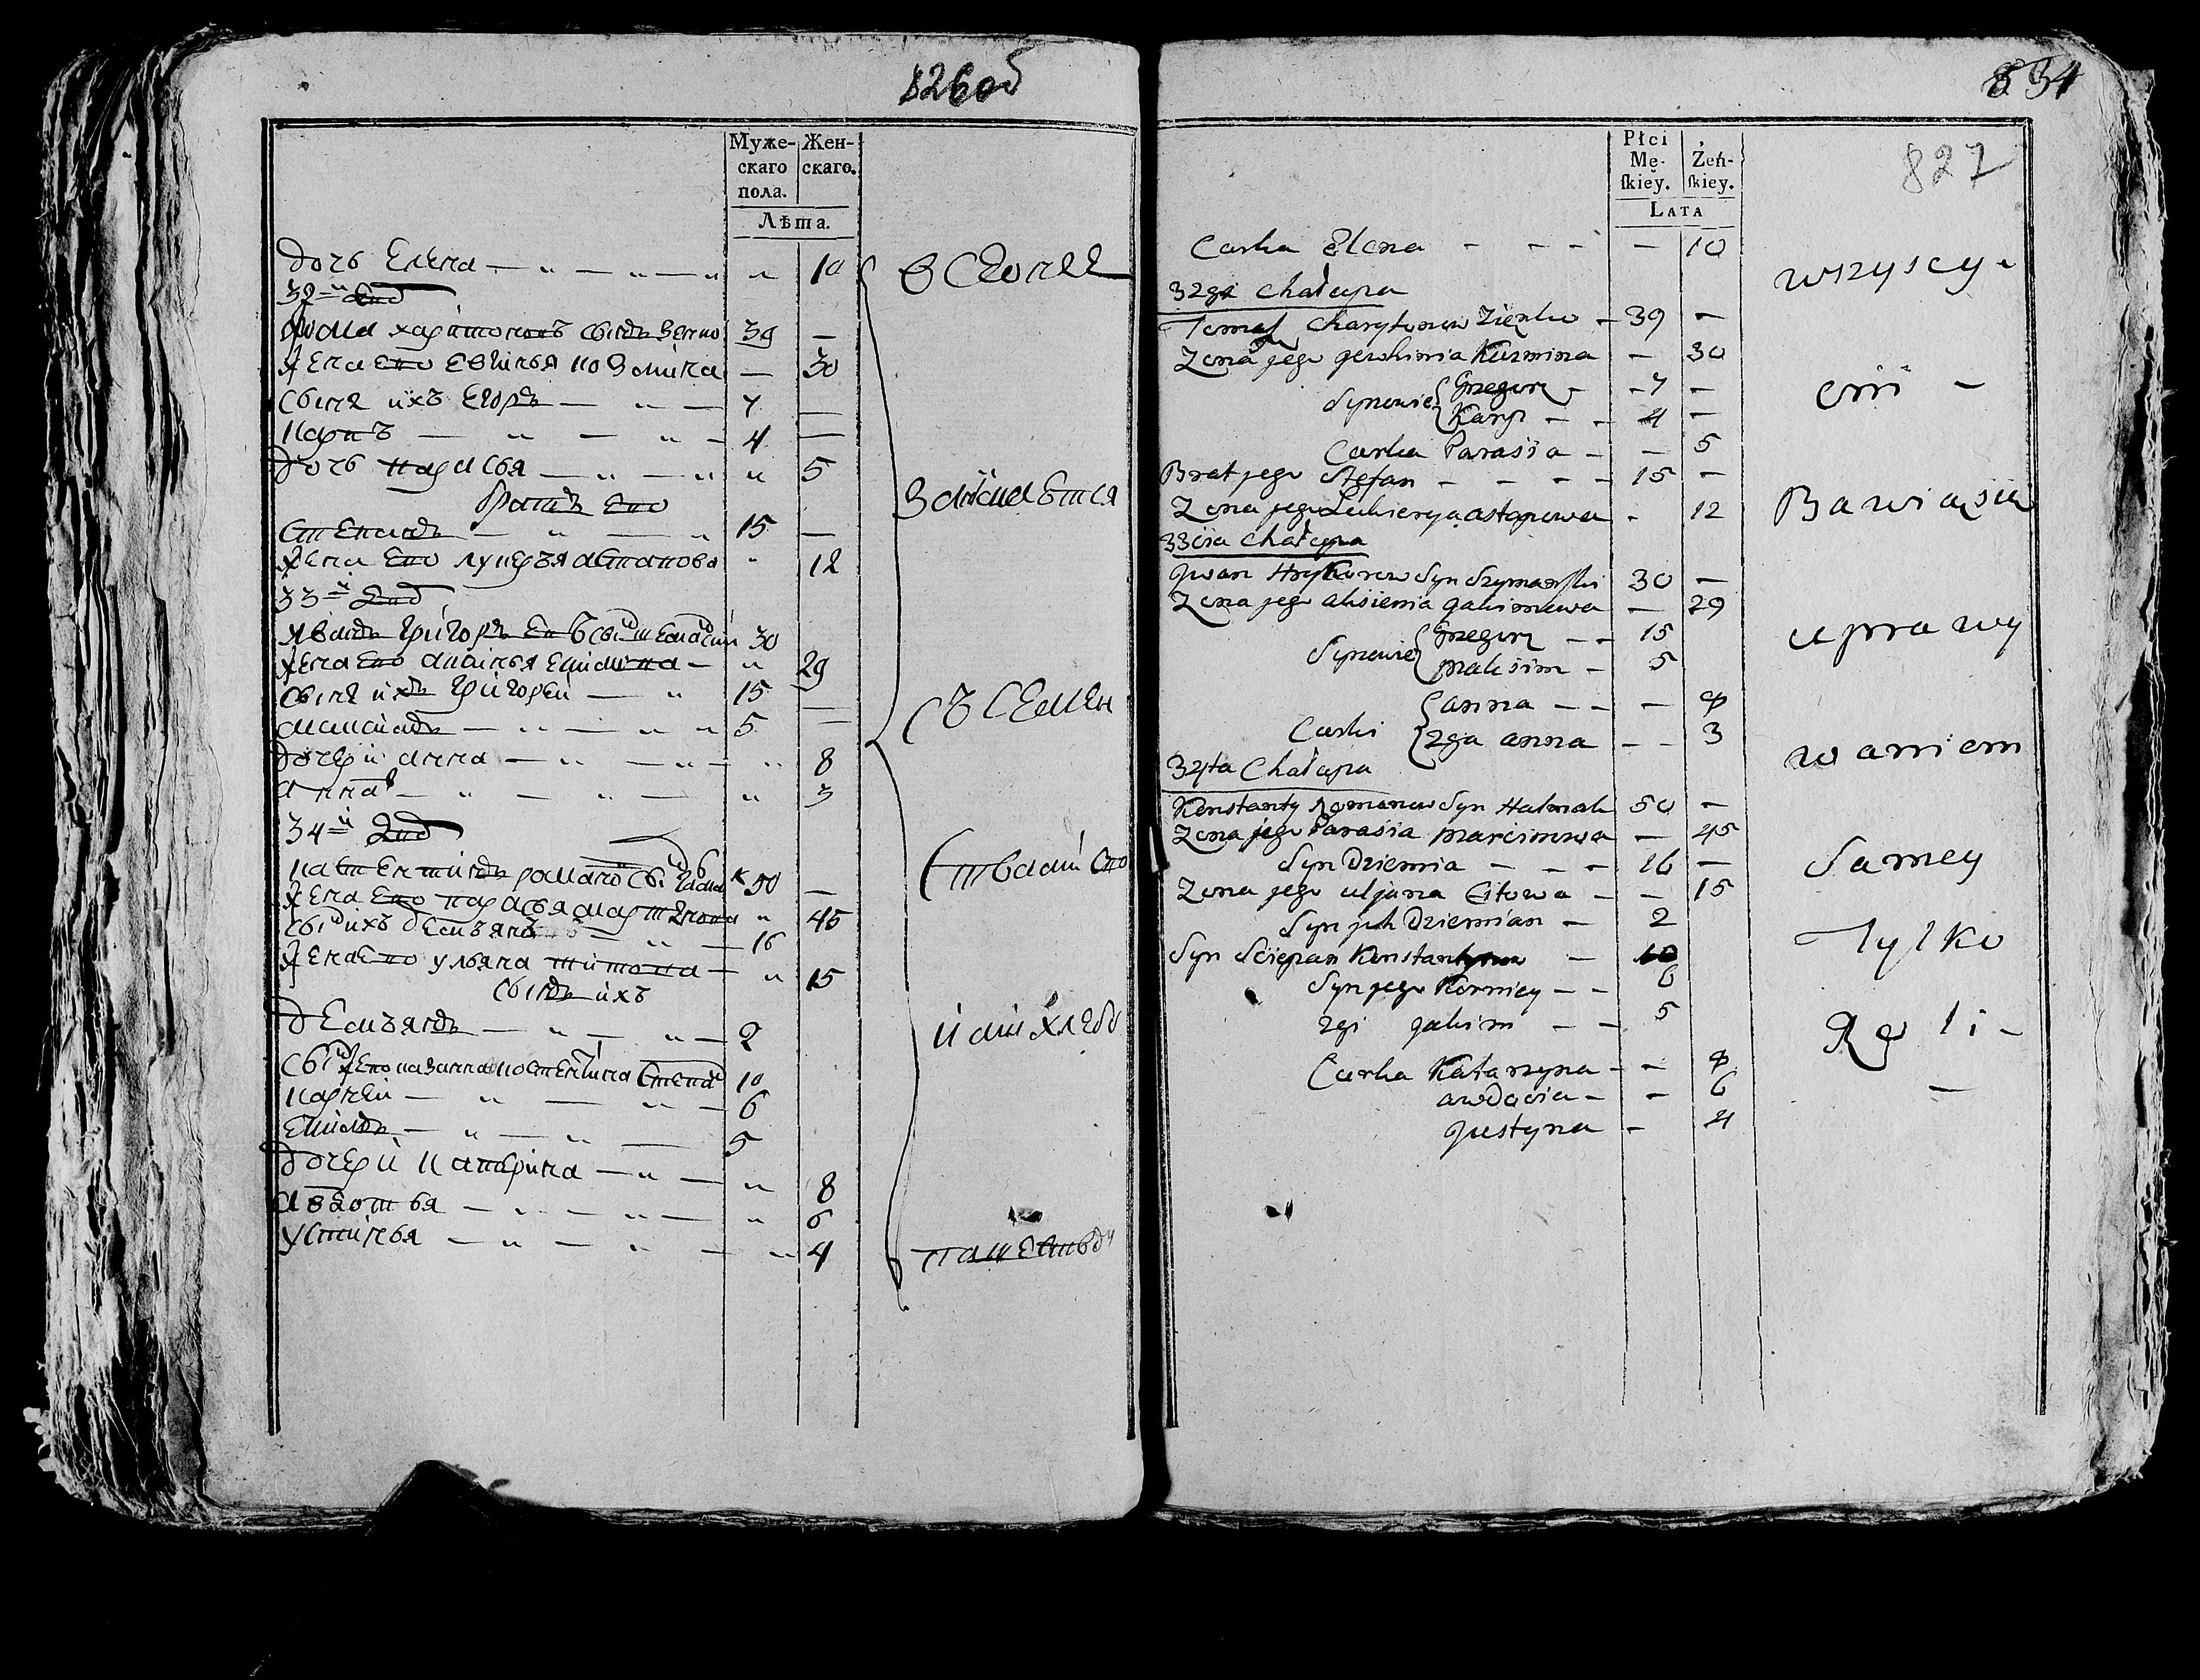 826об
Муже-
скаго
пола.
Жен-
скаго.
Лѣта.
дочь Елена — " — " — " " 10
32й двр
Фома Харитоновъ сынъ Зенко 39 —
Жена Его Евгинья Козмина — 30
сыны ихъ Егоръ — " — 7 —
Карпъ — " — " — 4 —
дочь Парасья — " — " " 5
братъ Его
Степанъ — " — " 15 —
Жена Его Лукерья Астапова " 12
33й двр
Иванъ Григорьевъ сын 30
Жена Его Акинья Екимова — " 29
сыны ихъ Григорей — " 15 —
Максимъ — " — " " 5 —
дочери Анна — " — " — " 8
Анна — " — " — " 3
34й двр
Костентинъ Романов сын 50 —
Жена Его Парасья Мартинова " 45
сын ихъ Демьянъ — " — 16
Жена Его Ульяна Титова — " 15
сынъ ихъ
Демьянъ — " — " — 2
Степан 10
Карней — " — " — 6
Екимъ — " — " — 5
дочери Катерина — " — " 8
Авдотья — " — " — " 6
Устинья — " — " — " 4
в с
Занимается
съ семен
ством Его
и хлебо
пашеством
834
827
Płci
Mę-
skiey.
Żeń-
skiey.
LATA
Carka Elena - - - — 10
32ga Chałupa
Tomasz Charytonow Zienko — 39 —
Zona jego Jewhinia Kuzmina — 30
Synowie Grzegorz - - 7 —
Karp - - 4 —
Carka Parasia - — 5
Brat jego Stefan - - - - 15 —
Zona jego Lukierya Astapowa - 12
33cia Chałupa
Jwan Hryhorow Syn Szymański 30 —
Zona jego Aksienia Jakimowa — 29
Synowie Grzegorz - - 15
Maksim - 5
Carki Anna - - — 8
2ga Anna - - 3
34ta Chałupa
Konstanty Romanow Syn Halmak 50 —
Zona jego Parasia Marcinowa — 45
Syn Dziemia - - - 16 —
Zona jego Uljana Citowa - — 15
Syn ich Dziemian - 2
Syn Sciepan Konstantynow — 10
Syn jego Korniey - - 6
2gi Jakim - - 5
Carka Katarzyna - - 8
Awdocia - — 6
Justyna - 4
wszyscy
cni -
Bawią się
uprawy
waniem
Samey
Tylko
Roli -
-